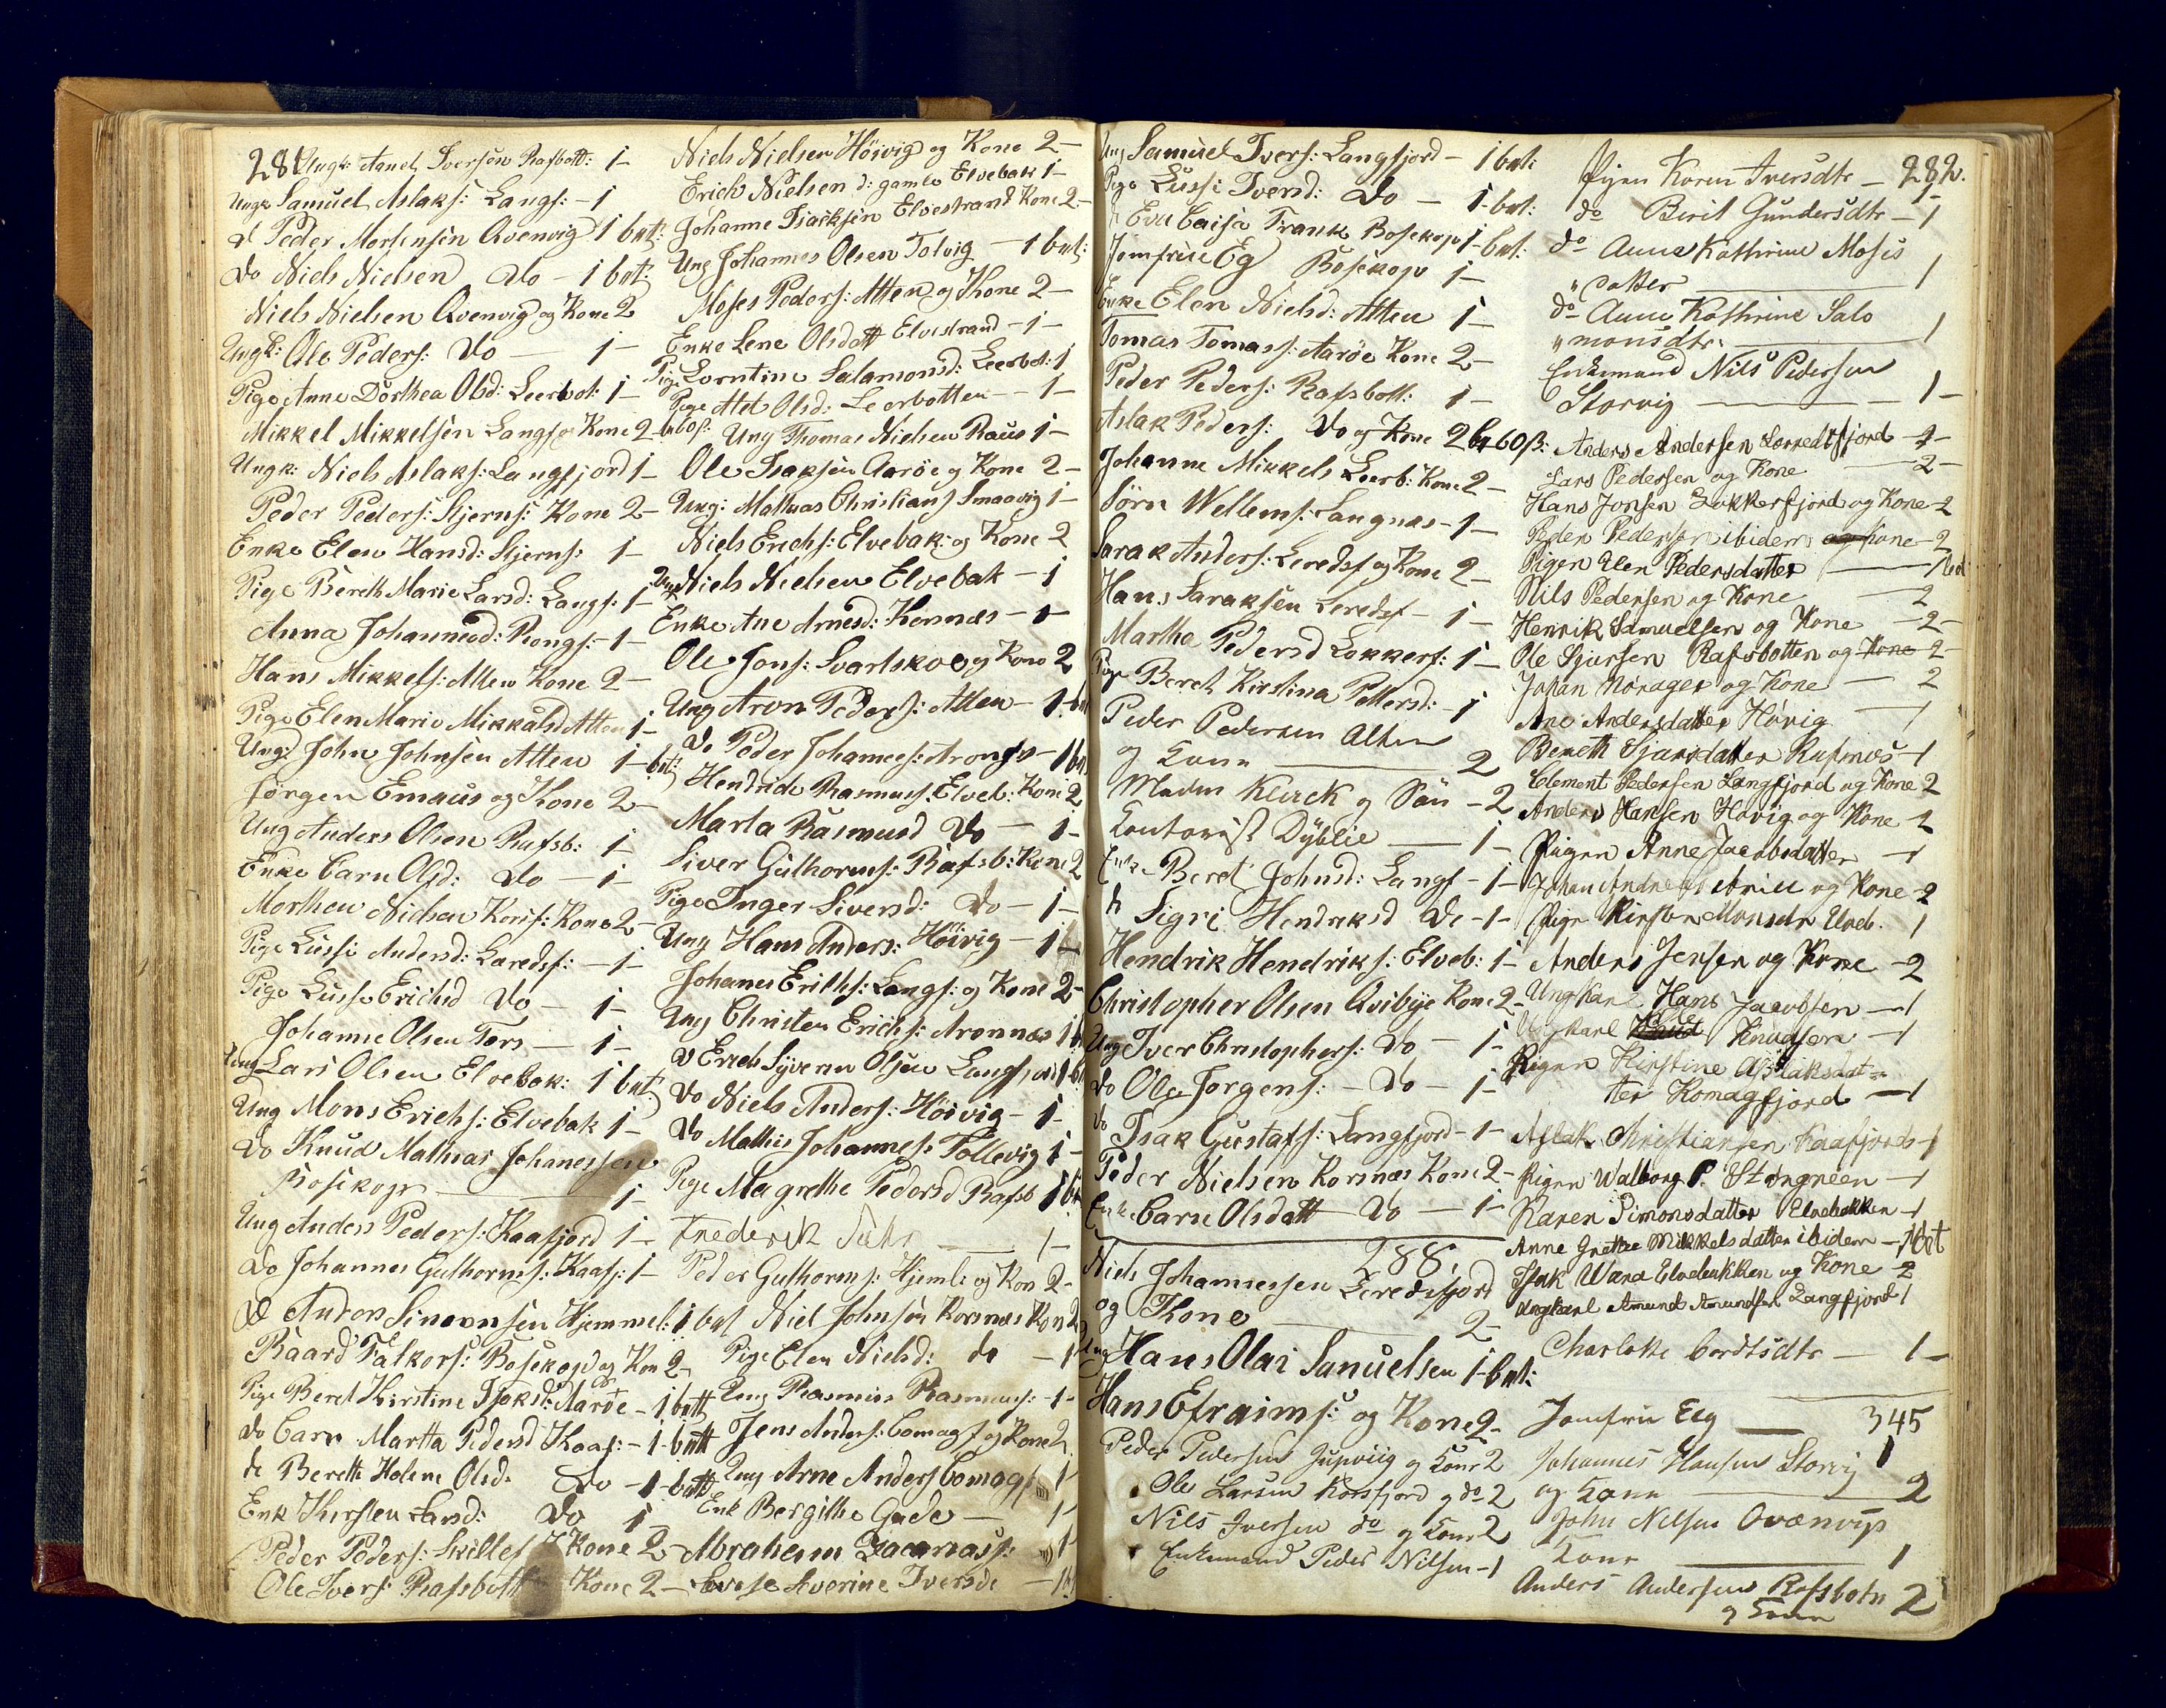 281
Ungk: Amel Iversen Rafsbott: 1-
Ungk Samuel Aslaks: Langf: - 1
d Peder Mortensen Qvenvig 1 bet:
do Niels Nielsen do - 1 bet:
Niels Nielsen Qvenvig og Kone 2
Ungk: Ole Peders: do 1-
Pige Anne Dorthea Olsd: Leerbot: 1-
Mikkel Mikkelsen Langf og Kone 2-
Ungk: Niels Aslaks: Langfjord 1-
Peder Peders: Stjerns: Kone 2-
Enke Elen Hansd: Stjerns: 1-
Pige Bereth Marie Larsd: Langf: 1-
Anna Johannesd: Rongs: - 1-
Hans Mikkels: Alten Kone 2-
Pige Elen Marie Mikkelsd Alten 1-
Ung: John Johnsen Alten 1- bet:
Jørgen Emaus og Kone 2-
Ung Anders Olsen Rafsb: 1-
Enke Carn Olsd: do - 1-
Morthen Nielsen Korsf: Kone 2-
Pige Lussi Andersd: Laredsf: - 1-
Pige Lusse Erichsd do - 1-
Johanne Olsen Tors - 1-
Ung Lars Olsen Elvebak: 1 bet:
Ung Mons Erichs: Elvebak 1-
do Knud Mathias Johanessen
Bosekop 1-
Ung Anders Peders: Kaafjord 1-
do Johannes Guthorms: Kaaf: 1-
do Anders Simonsen Hjemmel: 1 bet
Baard Falkers: Bosekop og Kon 2-
Pige Beret Kirstine Isaksd: Aarøe - 1 bett
do Carn Martta Pedersd Kaaf: - 1- bett
do Berette Helene Olsd. do - 1 bett
Enk Kirsten Larsd: do 1-
Peder Peders: Skillef Kone 2-
Ole Ivers: Rafsbott Kone 2-
Niels Nielsen Höivig og Kone 2-
Erich Nielsen d: gamle Elvebak 1-
Johanne Isacksen Elvestrand Kone 2-
Ung Johannes Olsen Tolvig - 1 bet:
Moses Peders: Alten og Kone 2-
Enke Lene Olsdatt Elvestrand - 1-
Pige Lorntine Salamonsd: Leerbot: 1
Pige Atet Olsd: Leerbotten - 1-
Ung Thomas Nielsen Raus 1-
Ole Isaksen Aarøe og Kone 2-
Ung: Mathias Christians Smaavig 1-
Niels Erichs: Elvebak: og Kone 2
Ung Niels Nielsen Elvebak - 1
Enke Ane Arnesd: Kornnæs - 1-
Ole Jons: Svartskoe og Kone 2
Ung Aron Peders: Alten - 1- bet
do Peder Johannes: Aronæs - 1 bet
Hendrich Rasmus: Elveb: Kone 2
Marta Rasmusd do - 1-
Siver Guthorms: Rafsb: Kone 2
Pige Inger Siversd: do - 1-
Ung Hans Anders: Höivig - 1
Johanes Erichs: Langf: og Kone 2-
Ung Christen Erichs: Aronnæs 1 b
do Erich Syvern Olsen Langfjord 1 b
do Niels Anders: Höivig - 1-
do Mathis Johannes: Tollevig 1-
Pige Magrethe Pedersd Rafsb 1 b
Frederik Suhr 1-
Peder Guthorms: Hjeml: og Kon 2-
Niel Johnsen Korsnæs Kone 2
Pige Elen Nielsd: do - 1
Ung Rasmus Rasmus: - 1-
Jens Anders: Comagf og Kone 2
Ung Arne Anders Comagf 1-
Enk Bergithe Gade - 1-
Abraham Zacarias: 1
Lovise Severine Iversd - 1 b
Ung Samuel Ivers: Langfjord - 1 bet:
Pige Lussi Iversd: do - 1- bet:
Eva Caisa Frank Bosekop 1- bet:
Jomfrue Eg Bosekop 1-
Enke Elen Nielsd: Alten 1-
Tomas Tomass: Aarøe Kone 2-
Peder Peders: Rafsbott: 1-
Aslak Peders: do og Kone 2 b 60 ß:
Johanne Mikkels Leerb: Kone 2-
Sörn Wellems: Langnæs - 1-
Sarak Anders: Leredsf og Kone 2-
Hans Saraksen Leredsf - 1-
Martha Pedersd Lokkerf: 1-
Pige Bereth Kirstina Pettersd: - 1
Peder Pedersen Alten
og Kone 2
Madm Klerck og Sön - 2
Contorist Dyblie 1-
Enke Beret Johnsd: Langf - 1-
do Sigri Hendriksd do - 1-
Hendrik Hendriks: Elveb: 1-
Christopher Olsen Qvibye Kone 2-
Ung Iver Christophers: do - 1-
do Ole Jørgens: - do - 1-
do Isak Gustafs: Langfjord - 1-
Peder Nielsen Korsnæs Kone 2-
Enke Carn Olsdatt do - 1-
288.
Niels Johannessen Leredsfjord
og Kone 2-
Ung Hans Olai Samuelsen 1- bet:
Hans Efraims: og Kone 2-
Peder Pedersen Jupvig og Kone 2
Ole Larsen Korsfjord og do 2
Nils Iversen do og Kone 2
Enkemand Peder Nilsen - 1
282.
Pigen Karen Iversdtr - 1-
do Berit Gundersdtr - 1
do Anna Kathrine Moses
" datter 1
do Anne Kathrine Salo
" monsdtr. 1
Enkemand Nils Pedersen
Storvig 1-
Anders Andersen Lerredsfjord - 1-
Lars Pedersen og Kone 2-
Hans Jonsen Lokkerfjord og Kone - 2
Peder Pedersen ibidem og Kone - 2
Pigen Elen Pedersdatter 1 bet
Nils Pedersen og Kone 2
Henrik Samuelsen og Kone - 2-
Ole Sjursen Rafsbotten og Kone 2-
Johan Norager og Kone 2
Ane Andersdatter Hövig 1
Bereth Sjursdatter Rafsnæs - 1
Clement Pedersen Langfjord og Kone 2
Anders Hansen Hövig og Kone 2
Pigen Anne Jacobsdatter - 1
Johan Andreas Aril og Kone - 2
Pige Kirsten Monsdtr Elveb. 1
Anders Jensen og Kone - 2
Ungkarl Hans Jacobsen - 1
Ungkarl Knud Knudsen - 1
Pigen Kirstine Aslaksdat-
ter Komagfjord - 1
Aslak Christiansen Kaafjord - 1
Pigen Walborg P. Stongneen - 1
Karen Simonsdatter Elvebakken - 1
Anne Grethe Mikkelsdatter ibidem - 1 bet
Isak Wara Elvebakken og Kone - 2
Ungkarl Amund Amundsen Langfjord 1
Charlotte Cordtsdtr - 1-
345
Jomfrue Eeg 1
Johannes Hansen Storvig
og Kone 2
John Nilsen Qvænvig
Kone 1
Anders Andersen Rafsbotn 2
og Kone